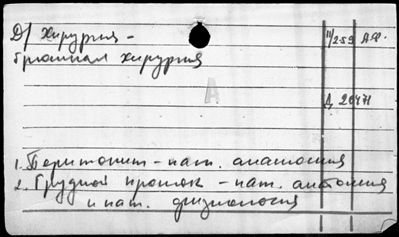 Д/ Хирургия -
брюшная хирургия
11/2-59 А.Ф.
Д 20471
А
1. Перитонит - пат. анатомия
2. Грудной проток - пат. анатомия
и пат. физиология